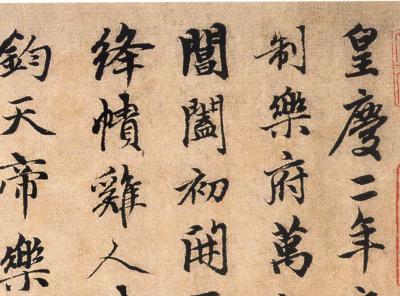 皇慶二年
制樂府萬
閶闔初開
絳幘雞人
鈞天帝樂